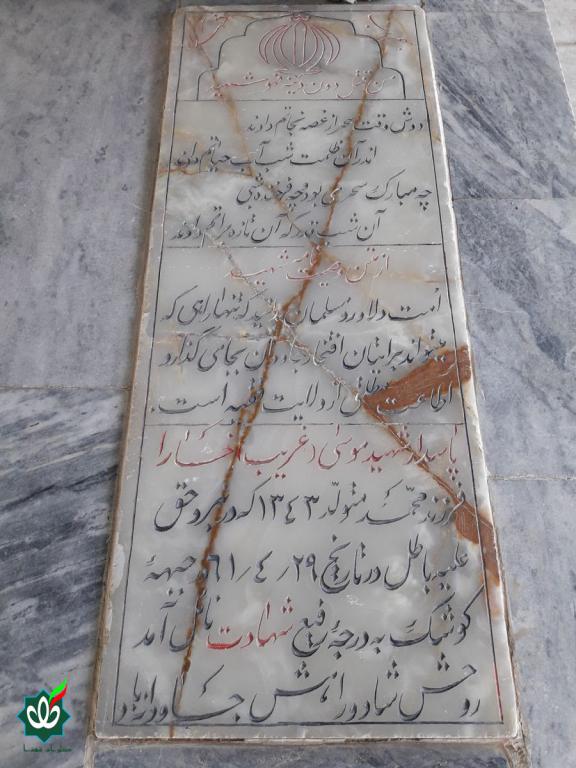 من قتل دون دینه فهو شهید
دوش وقت سحر از غصه نجاتم دادند
اندر آن ظلمت شب آب حیاتم دادند
چه مبارک سحری بود و چه فرخنده شبی
آن شب قدر که این تازه براتم دادند
از متن وصیت نامه شهید
امت دلاور و مسلمان بدانید که تنها راهی که
میتواند برایتان افتخار جاودان بجای گذارد
اطاعت مطلق از ولایت فقیه است.
پاسدار شهید موسی دغریب افخارا
فرزند محمد متولد ۱۳۴۳ که در نبرد حق
علیه باطل در تاریخ ۶۱/۴/۲۹ در جبهه
کوشک به درجه رفیع شهادت نائل آمد
روحش شاد و راهش جاودان باد